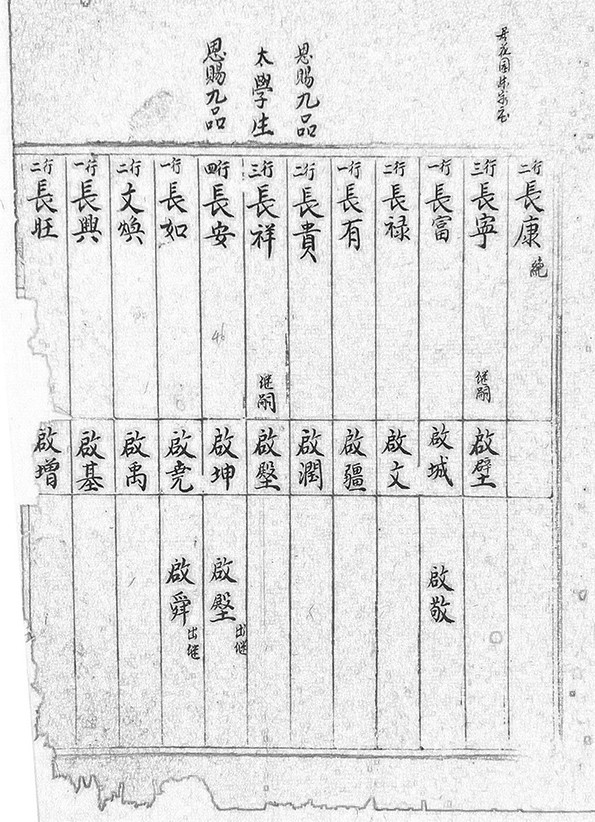 恩賜九品
太學生
恩賜九品
行二 長康 絶
行三 長寧 继嗣
行一 長富
行二 長禄
行一 長有
行二 長貴
行三 長祥 继嗣
行四 長安
46
行一 長如
行二 文煥
行一 長興
行二 長旺
啟壁
啟城
啟文
啟疆
啟潤
啟墅
啟坤
啟堯
啟禹
啟基
啟增
啟敬
啟墅 出继
啟舜 出继